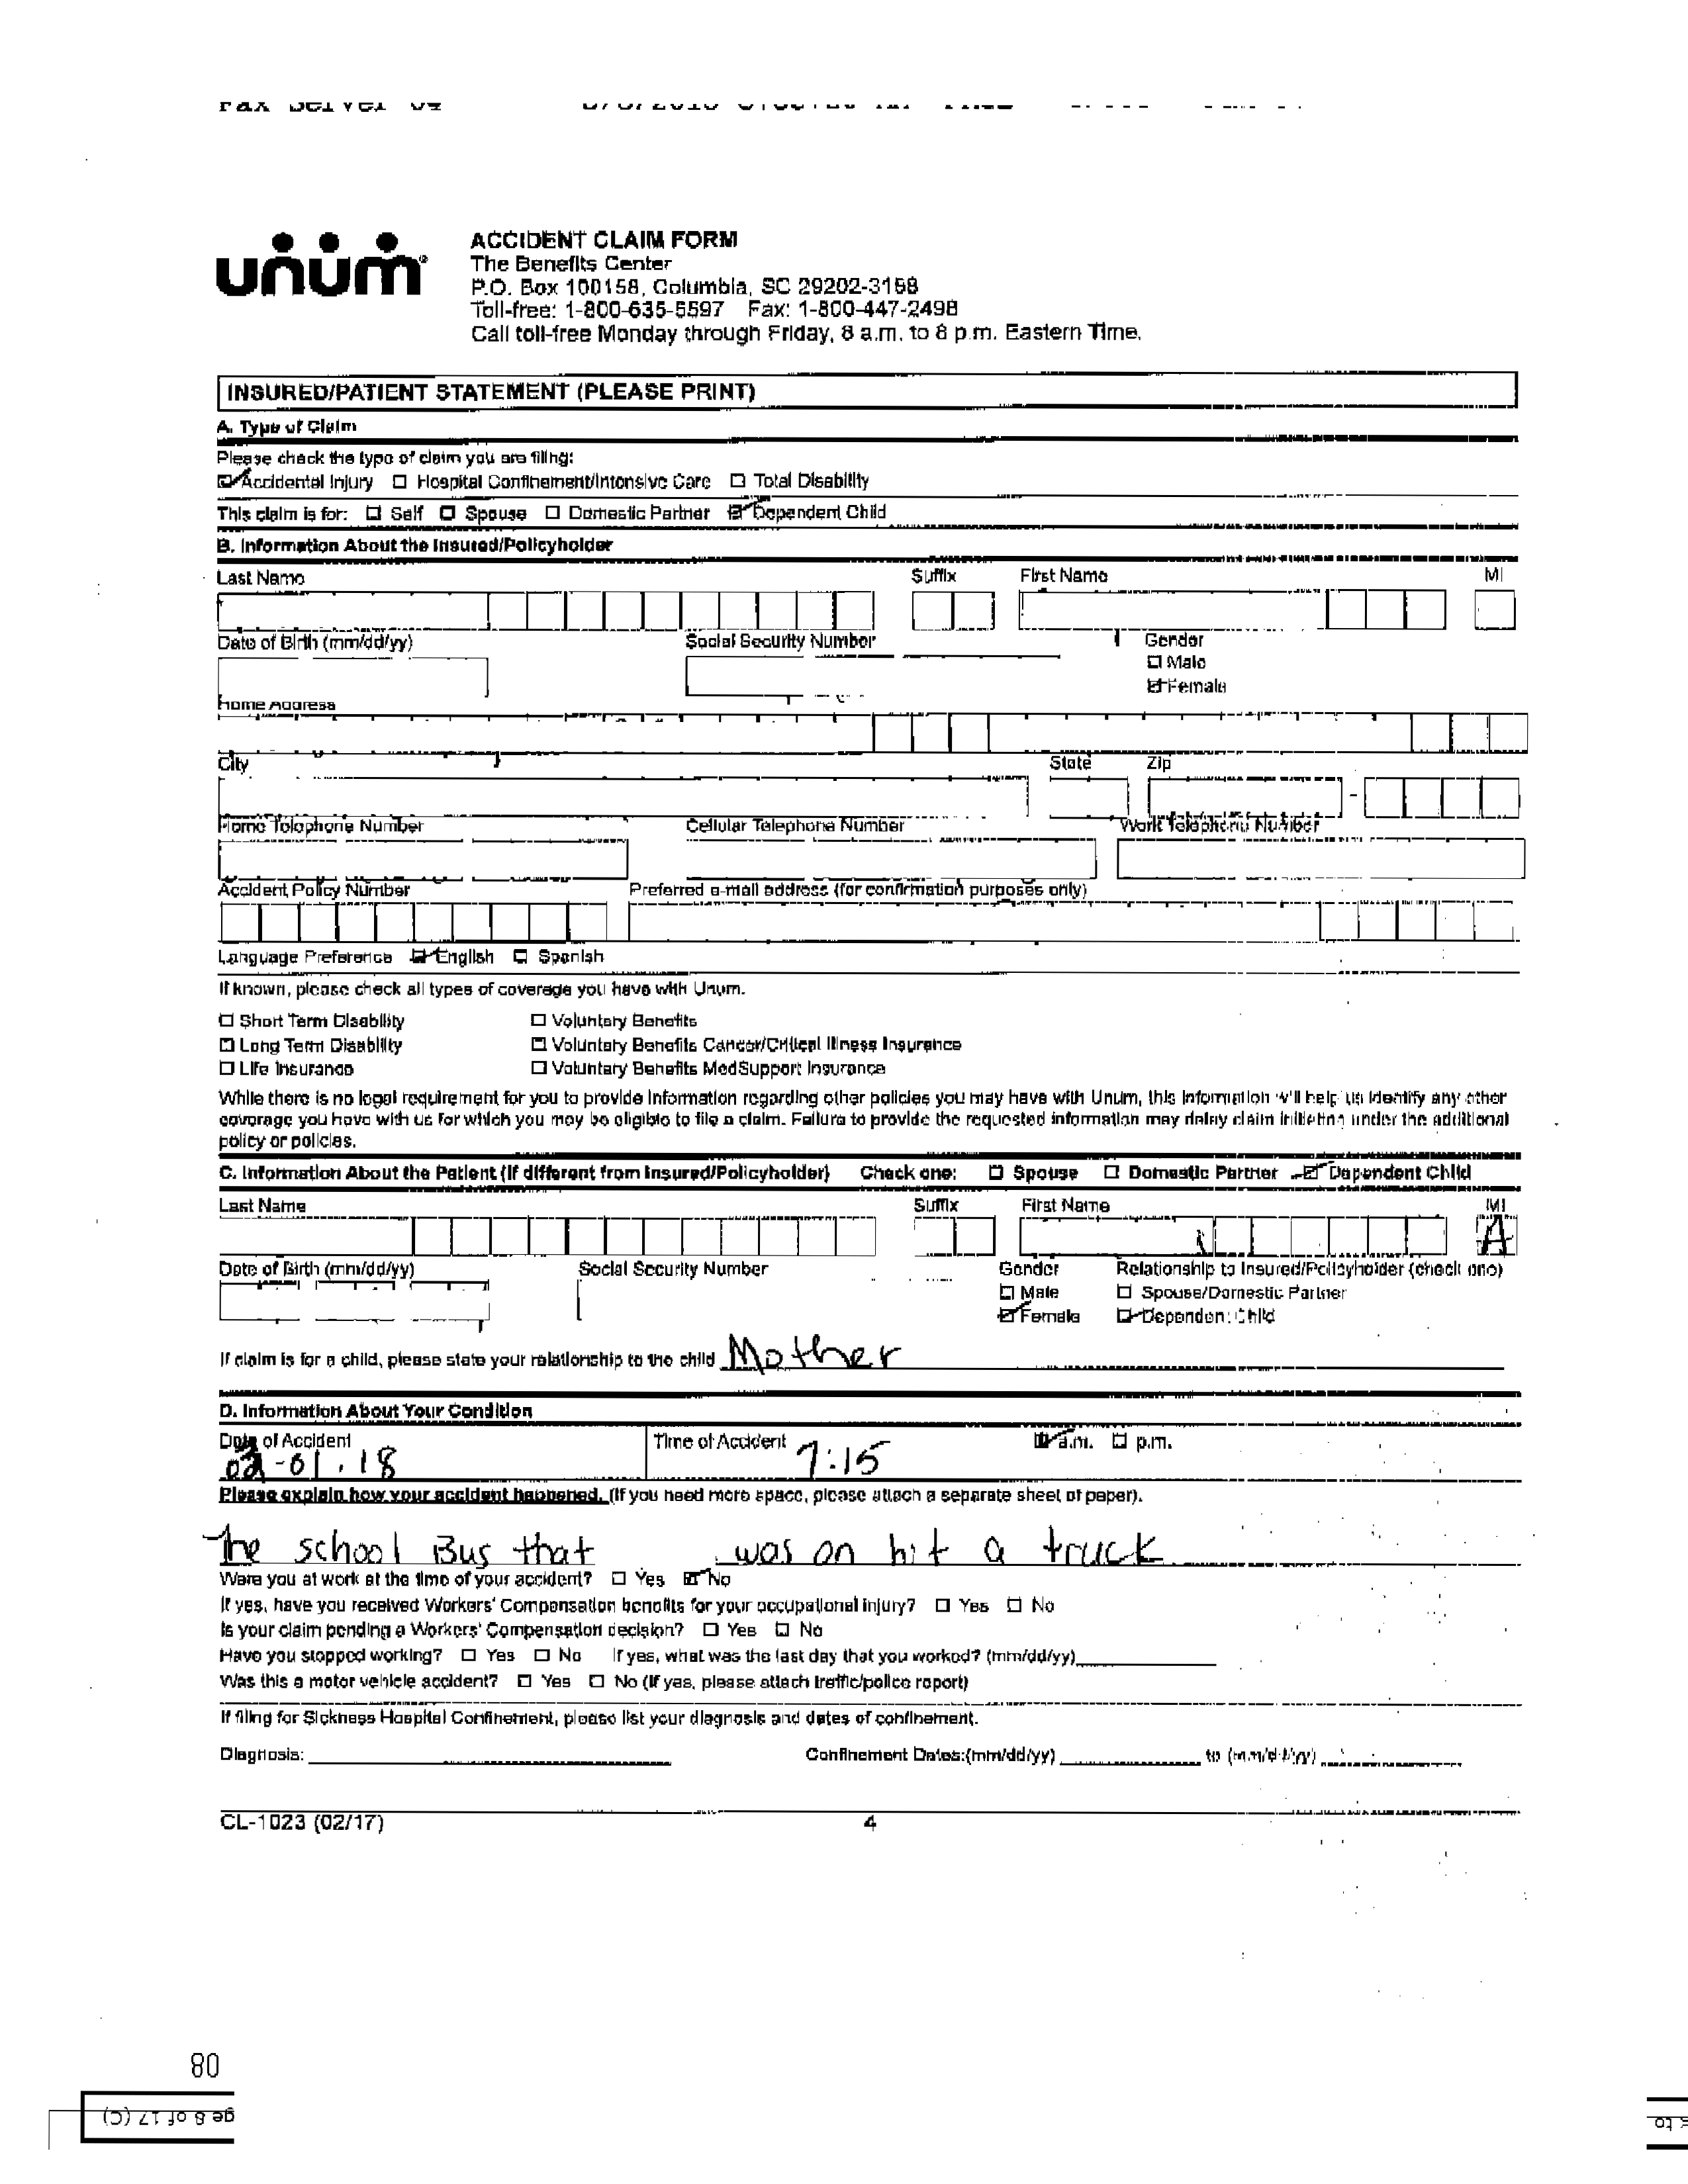 Fax Server 04
unum
ACCIDENT CLAIM FORM
The Benefits Center
P.O. Box 100158, Columbia, SC 29202-3158
Toll-free: 1-800-635-5597 Fax: 1-800-447-2498
Call toll-free Monday through Friday, 8 a.m. to 8 p.m. Eastern Time.
INSURED/PATIENT STATEMENT (PLEASE PRINT)
A. Type of Claim
Please check the type of claim you are filing:
☑ Accidental Injury ☐ Hospital Confinement/Intensive Care ☐ Total Disability
This claim is for: ☐ Self ☐ Spouse ☐ Domestic Partner ☑ Dependent Child
B. Information About the Insured/Policyholder
Last Name Suffix First Name MI
Date of Birth (mm/dd/yy) Social Security Number Gender
☐ Male
☑ Female
Home Address
City State Zip
Home Telephone Number Cellular Telephone Number Work Telephone Number
Accident Policy Number Preferred e-mail address (for confirmation purposes only)
Language Preference ☑ English ☐ Spanish
If known, please check all types of coverage you have with Unum.
☐ Short Term Disability ☐ Voluntary Benefits
☐ Long Term Disability ☐ Voluntary Benefits Cancer/Critical Illness Insurance
☐ Life Insurance ☐ Voluntary Benefits MedSupport Insurance
While there is no legal requirement for you to provide information regarding other policies you may have with Unum, this information will help us identify any other
coverage you have with us for which you may be eligible to file a claim. Failure to provide the requested information may delay claim initiation under the additional
policy or policies.
C. Information About the Patient (If different from Insured/Policyholder) Check one: ☐ Spouse ☐ Domestic Partner ☑ Dependent Child
Last Name Suffix First Name MI
A
Date of Birth (mm/dd/yy) Social Security Number Gender Relationship to Insured/Policyholder (check one)
☐ Male ☐ Spouse/Domestic Partner
☑ Female ☑ Dependent Child
If claim is for a child, please state your relationship to the child Mother
D. Information About Your Condition
Date of Accident Time of Accident ☑ a.m. ☐ p.m.
02-01.18 7:15
Please explain how your accident happened. (If you need more space, please attach a separate sheet of paper).
The school Bus that was on hit a truck
Were you at work at the time of your accident? ☐ Yes ☑ No
If yes, have you received Workers' Compensation benefits for your occupational injury? ☐ Yes ☐ No
Is your claim pending a Workers' Compensation decision? ☐ Yes ☐ No
Have you stopped working? ☐ Yes ☐ No If yes, what was the last day that you worked? (mm/dd/yy)
Was this a motor vehicle accident? ☐ Yes ☐ No (If yes, please attach traffic/police report)
If filing for Sickness Hospital Confinement, please list your diagnosis and dates of confinement.
Diagnosis: Confinement Dates:(mm/dd/yy) to (mm/dd/yy)
CL-1023 (02/17) 4
80
ge 8 of 17 (C)